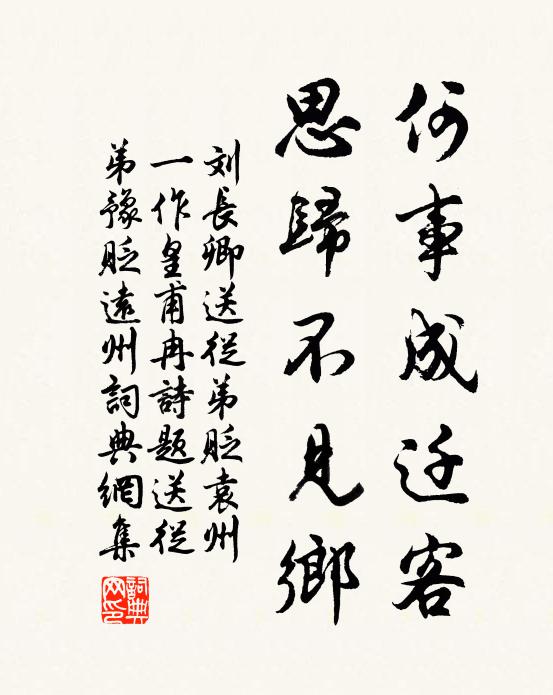 何事成迁客
思歸不見鄉
刘長卿送從弟貶袁州
一作皇甫冉詩題送從
弟豫貶遠州詞典網集
詞典
网印